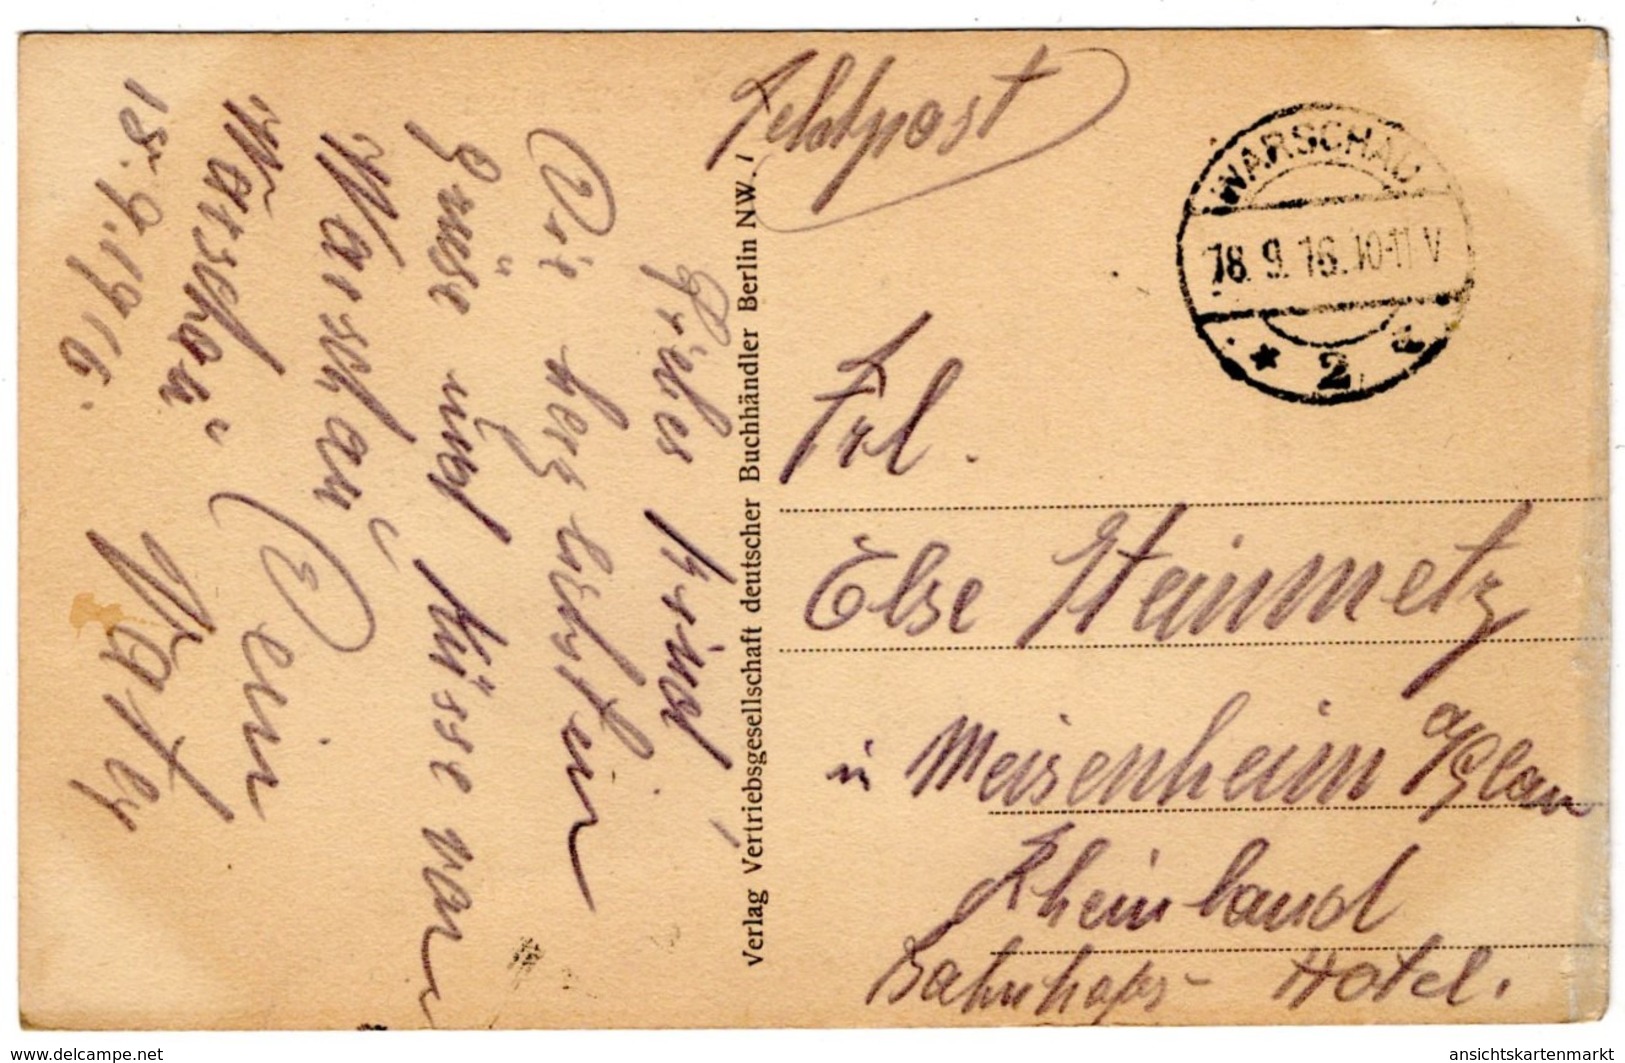 Feldpost
WARSCHAU
18. 9. 16. 10-11 V
* 2 a
Frl.
Else Steinmetz
in Meisenheim a/Glan
Rheinland
Bahnhofs- Hotel.
Verlag Vertriebsgesellschaft deutscher Buchhändler Berlin NW. 7
Liebes Kind,
Die herzlichsten
Grüse und Küsse von
Warschau
Dein
Vatey
Warschau
18. 9. 1916.
www.delcampe.net
ansichtskartenmarkt